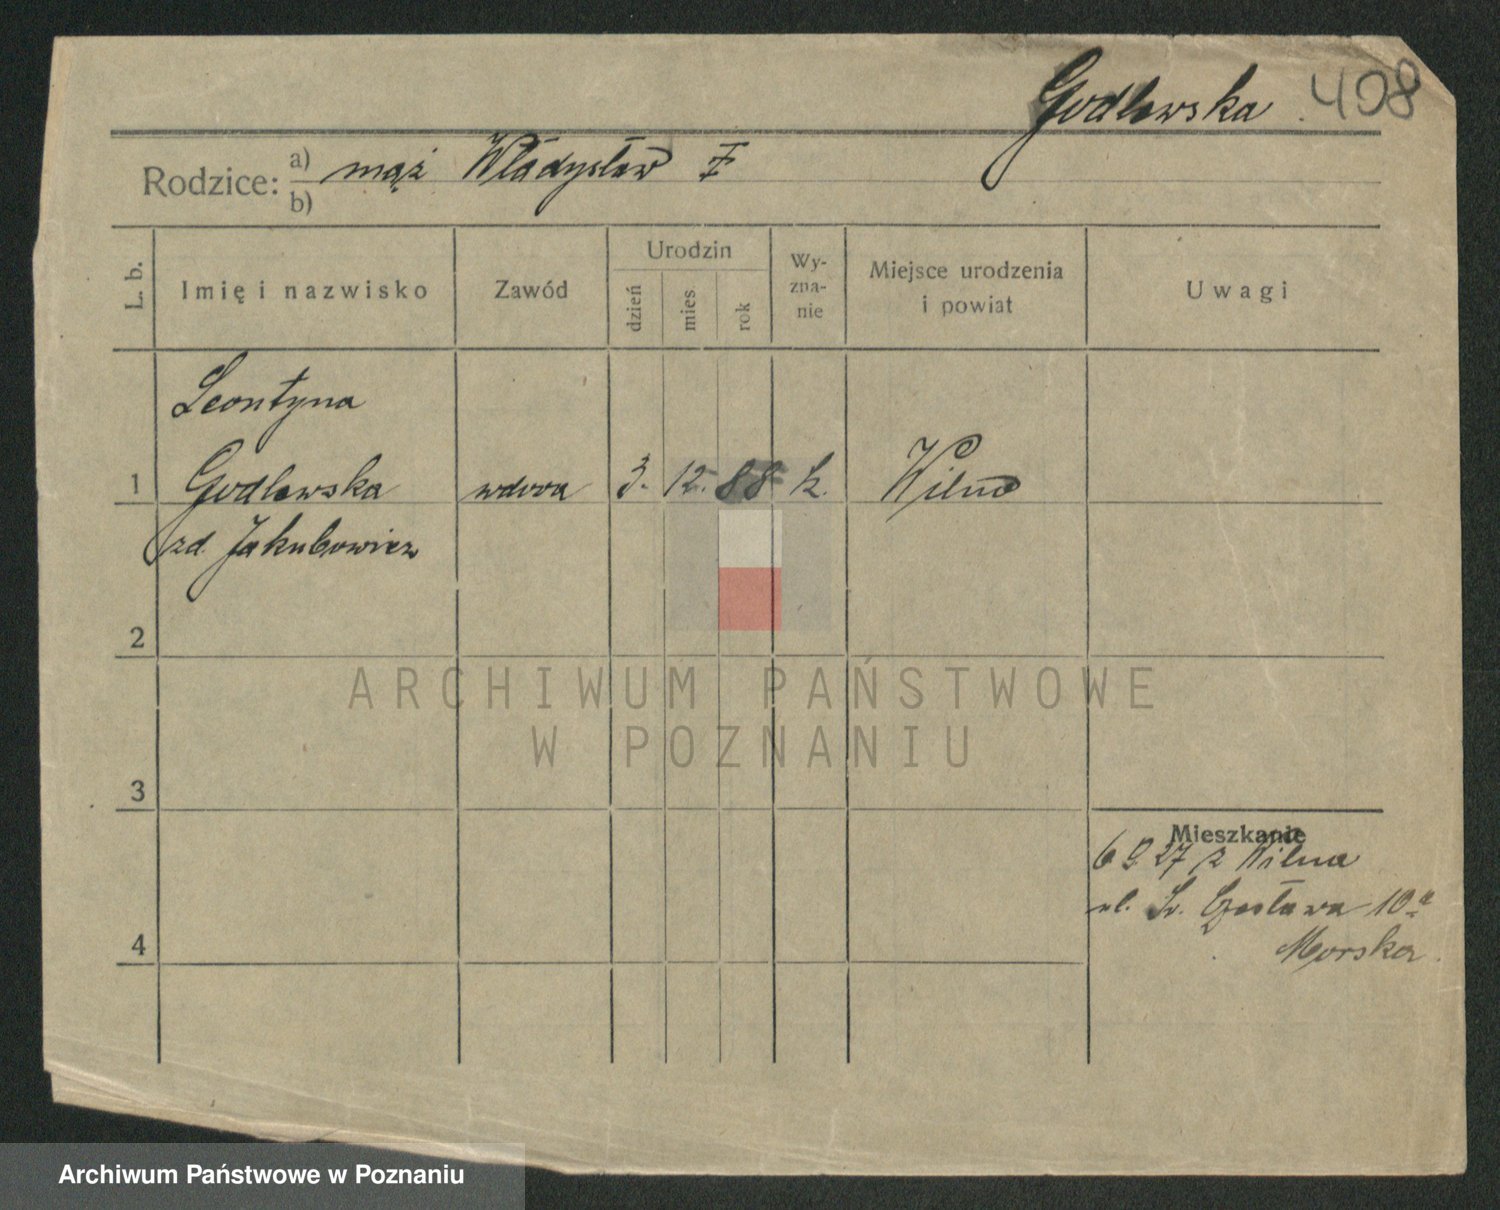 Godlewska 408
Rodzice: a) mąż Władysław
b)
L. b.
Imię i nazwisko
Zawód
Urodzin
dzień
mies.
rok
Wy-
zna-
nie
Miejsce urodzenia
i powiat
Uwagi
Leontyna
1 Godlewska wdowa 3. 12. 88 k. Wilno
zd. Jakubowicz
2
ARCHIWUM PAŃSTWOWE
W POZNANIU
3
Mieszkanie
6 9. 27 z Wilna
ul. Św. Czesława 10a
4
Morska.
Archiwum Państwowe w Poznaniu